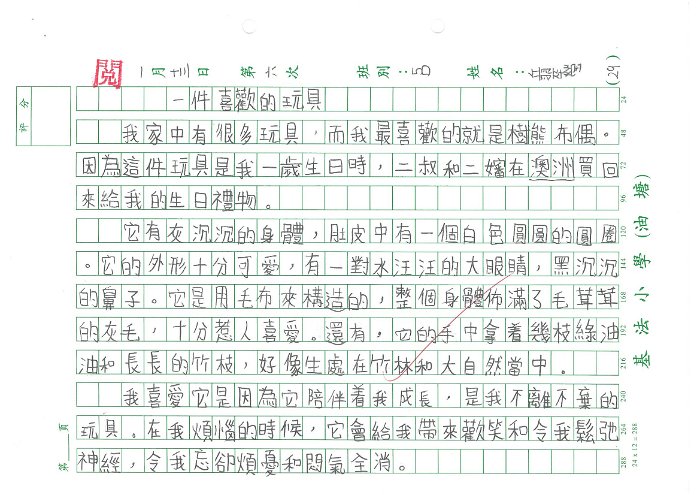 閱
一月十三日 第六次 班別：5D 姓名： (29)
評分
一件喜歡的玩具 24
我家中有很多玩具，而我最喜歡的就是樹熊布偶。 48
因為這件玩具是我一歲生日時，二叔和二嬸在澳洲買回 72
來給我的生日禮物。 96
它有灰沉沉的身體，肚皮中有一個白色圓圓的圓圈 120
。它的外形十分可愛，有一對水汪汪的大眼睛，黑沉沉 144
的鼻子。它是用毛布來構造的，整個身體佈滿了毛茸茸 168
的灰毛，十分惹人喜愛。還有，它的手中拿着幾枝綠油 192
油和長長的竹枝，好像生處在竹林和大自然當中。 216
我喜愛它是因為它陪伴着我成長，是我不離不棄的 240
玩具。在我煩惱的時候，它會給我帶來歡笑和令我鬆弛 264
神經，令我忘卻煩憂和悶氣全消。 288
第 頁
基法小學(油塘)
24 x 12 = 288